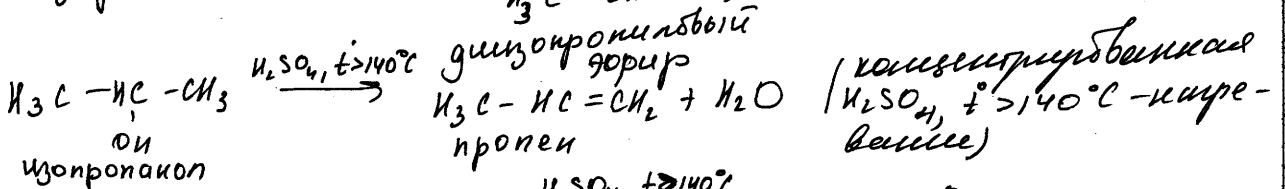 H₃C
диизопропиловый
эфир
H₃C – HC – CH₃ H₂SO₄, t°>140°C → H₃C – HC = CH₂ + H₂O (концентрированная
OH пропен H₂SO₄, t°>140°C – нагре-
изопропанол вание)
H₂SO₄, t>140°C